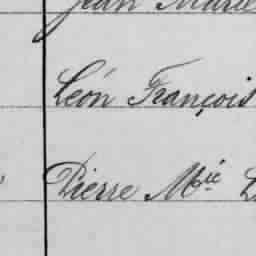 Jean Marie
Léon François
Pierre Mie L